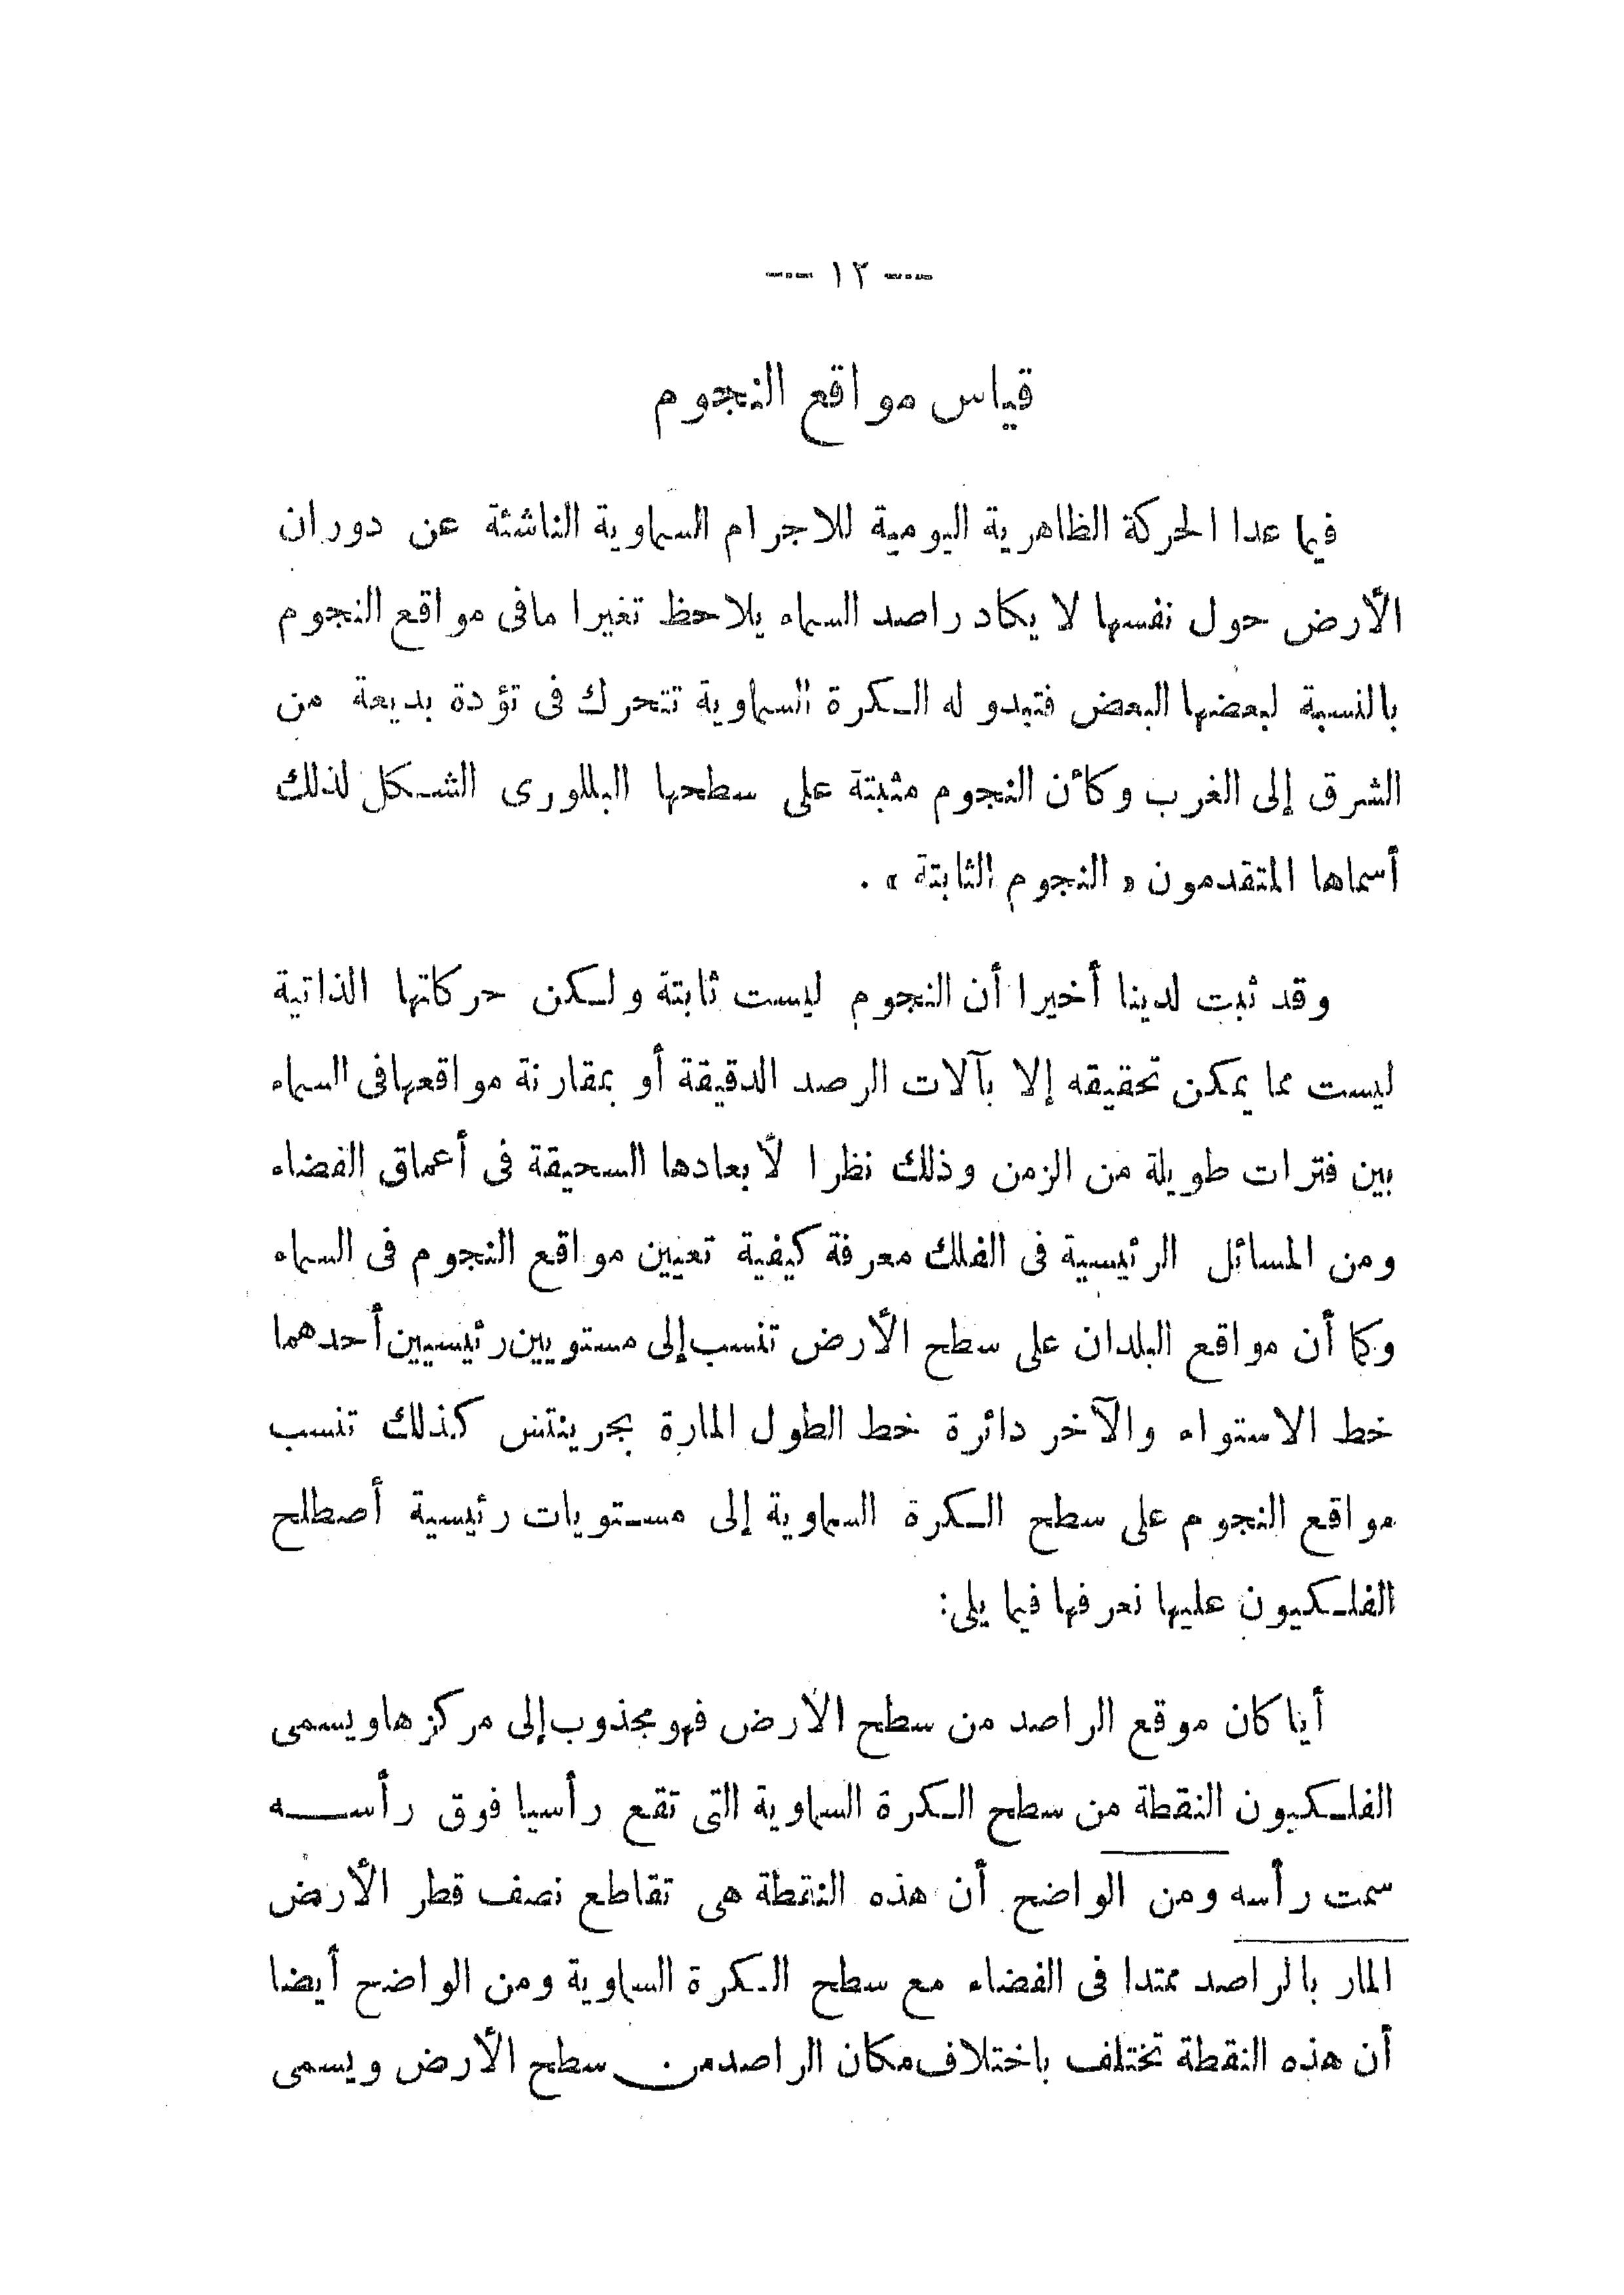 — ١٢ —
قياس مواقع النجوم
فيما عدا الحركة الظاهرية اليومية للاجرام السماوية الناشئة عن دوران
الأرض حول نفسها لا يكاد راصد السماء يلاحظ تغيرا مافى مواقع النجوم
بالنسبة لبعضها البعض فتبدو له الكرة السماوية تتحرك فى تؤدة بديعة من
الشرق إلى الغرب وكأن النجوم مثبتة على سطحها البللورى الشكل لذلك
أسماها المتقدمون « النجوم الثابتة » .
وقد ثبت لدينا أخيرا أن النجوم ليست ثابتة ولكن حركاتها الذاتية
ليست مما يمكن تحقيقه إلا بآلات الرصد الدقيقة أو بمقارنة مواقعهافى السماء
بين فترات طويلة من الزمن وذلك نظرا لأبعادها السحيقة فى أعماق الفضاء
ومن المسائل الرئيسية فى الفلك معرفة كيفية تعيين مواقع النجوم فى السماء
وكما أن مواقع البلدان على سطح الأرض تنسب إلى مستويين رئيسيين أحدهما
خط الاستواء والآخر دائرة خط الطول المارة بجرينتش كذلك تنسب
مواقع النجوم على سطح الكرة السماوية إلى مستويات رئيسية أصطلح
الفلكيون عليها نعرفها فيما يلى:
أيا كان موقع الراصد من سطح الأرض فهو مجذوب إلى مركزها ويسمى
الفلكيون النقطة من سطح الكرة السماوية التى تقع رأسيا فوق رأسه
سمت رأسه ومن الواضح أن هذه النقطة هى تقاطع نصف قطر الأرض
المار بالراصد ممتدا فى الفضاء مع سطح الكرة السماوية ومن الواضح أيضا
أن هذه النقطة تختلف باختلاف مكان الراصد من سطح الأرض ويسمى